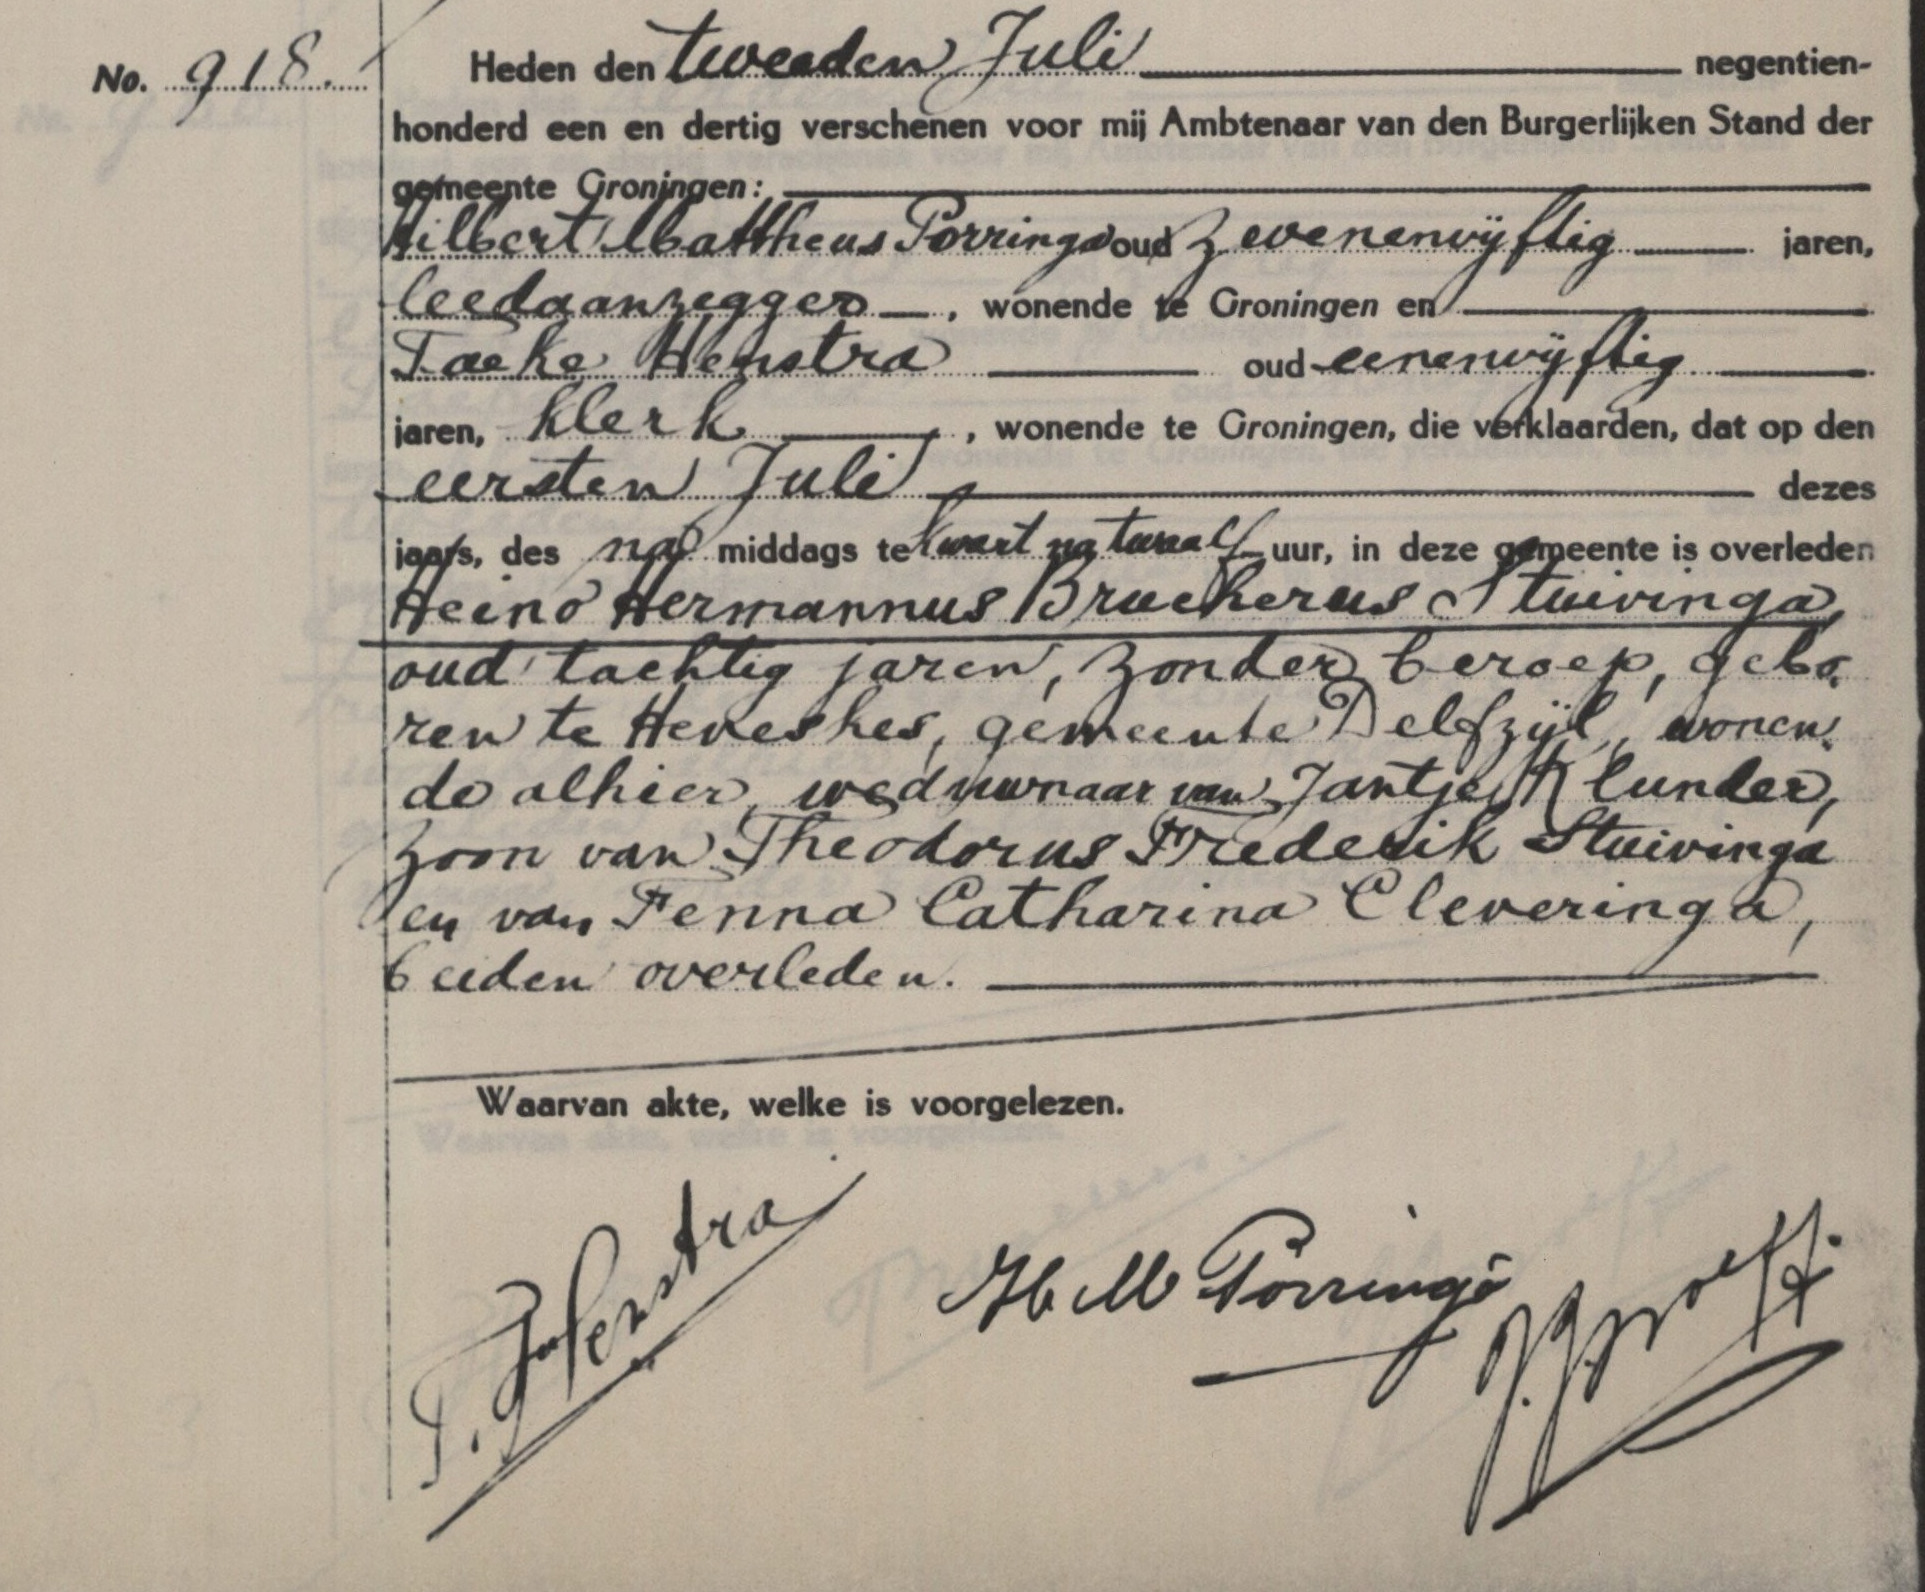 No. 918. Heden den tweeden Juli negentien-
honderd een en dertig verschenen voor mij Ambtenaar van den Burgerlijken Stand der
gemeente Groningen:
Hilbert Mattheus Porringa oud zevenenvijftig jaren,
leedaanzegger, wonende te Groningen en
Taeke Henstra oud eenenvijftig
jaren, klerk, wonende te Groningen, die verklaarden, dat op den
eersten Juli dezes
jaars, des na middags te kwart na twaalf uur, in deze gemeente is overleden
Heino Hermannus Bruckerus Stuivinga,
oud tachtig jaren, zonder beroep, gebo-
ren te Heveskes, gemeente Delfzijl, wonen-
de alhier, weduwnaar van Jantje Klunder,
zoon van Theodorus Frederik Stuivinga
en van Fenna Catharina Cleveringa,
beiden overleden.
Waarvan akte, welke is voorgelezen.
T. Henstra
H M Porringa